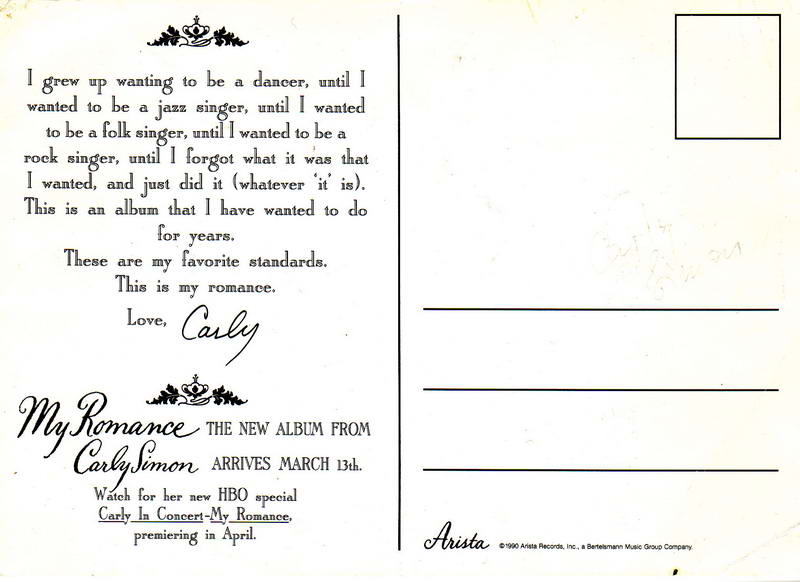 I grew up wanting to be a dancer, until I
wanted to be a jazz singer, until I wanted
to be a folk singer, until I wanted to be a
rock singer, until I forgot what it was that
I wanted, and just did it (whatever 'it' is).
This is an album that I have wanted to do
for years.
These are my favorite standards.
This is my romance.
Love, Carly
My Romance THE NEW ALBUM FROM
Carly Simon ARRIVES MARCH 13th.
Watch for her new HBO special
Carly In Concert-My Romance,
premiering in April.
Arista ©1990 Arista Records, Inc., a Bertelsmann Music Group Company.